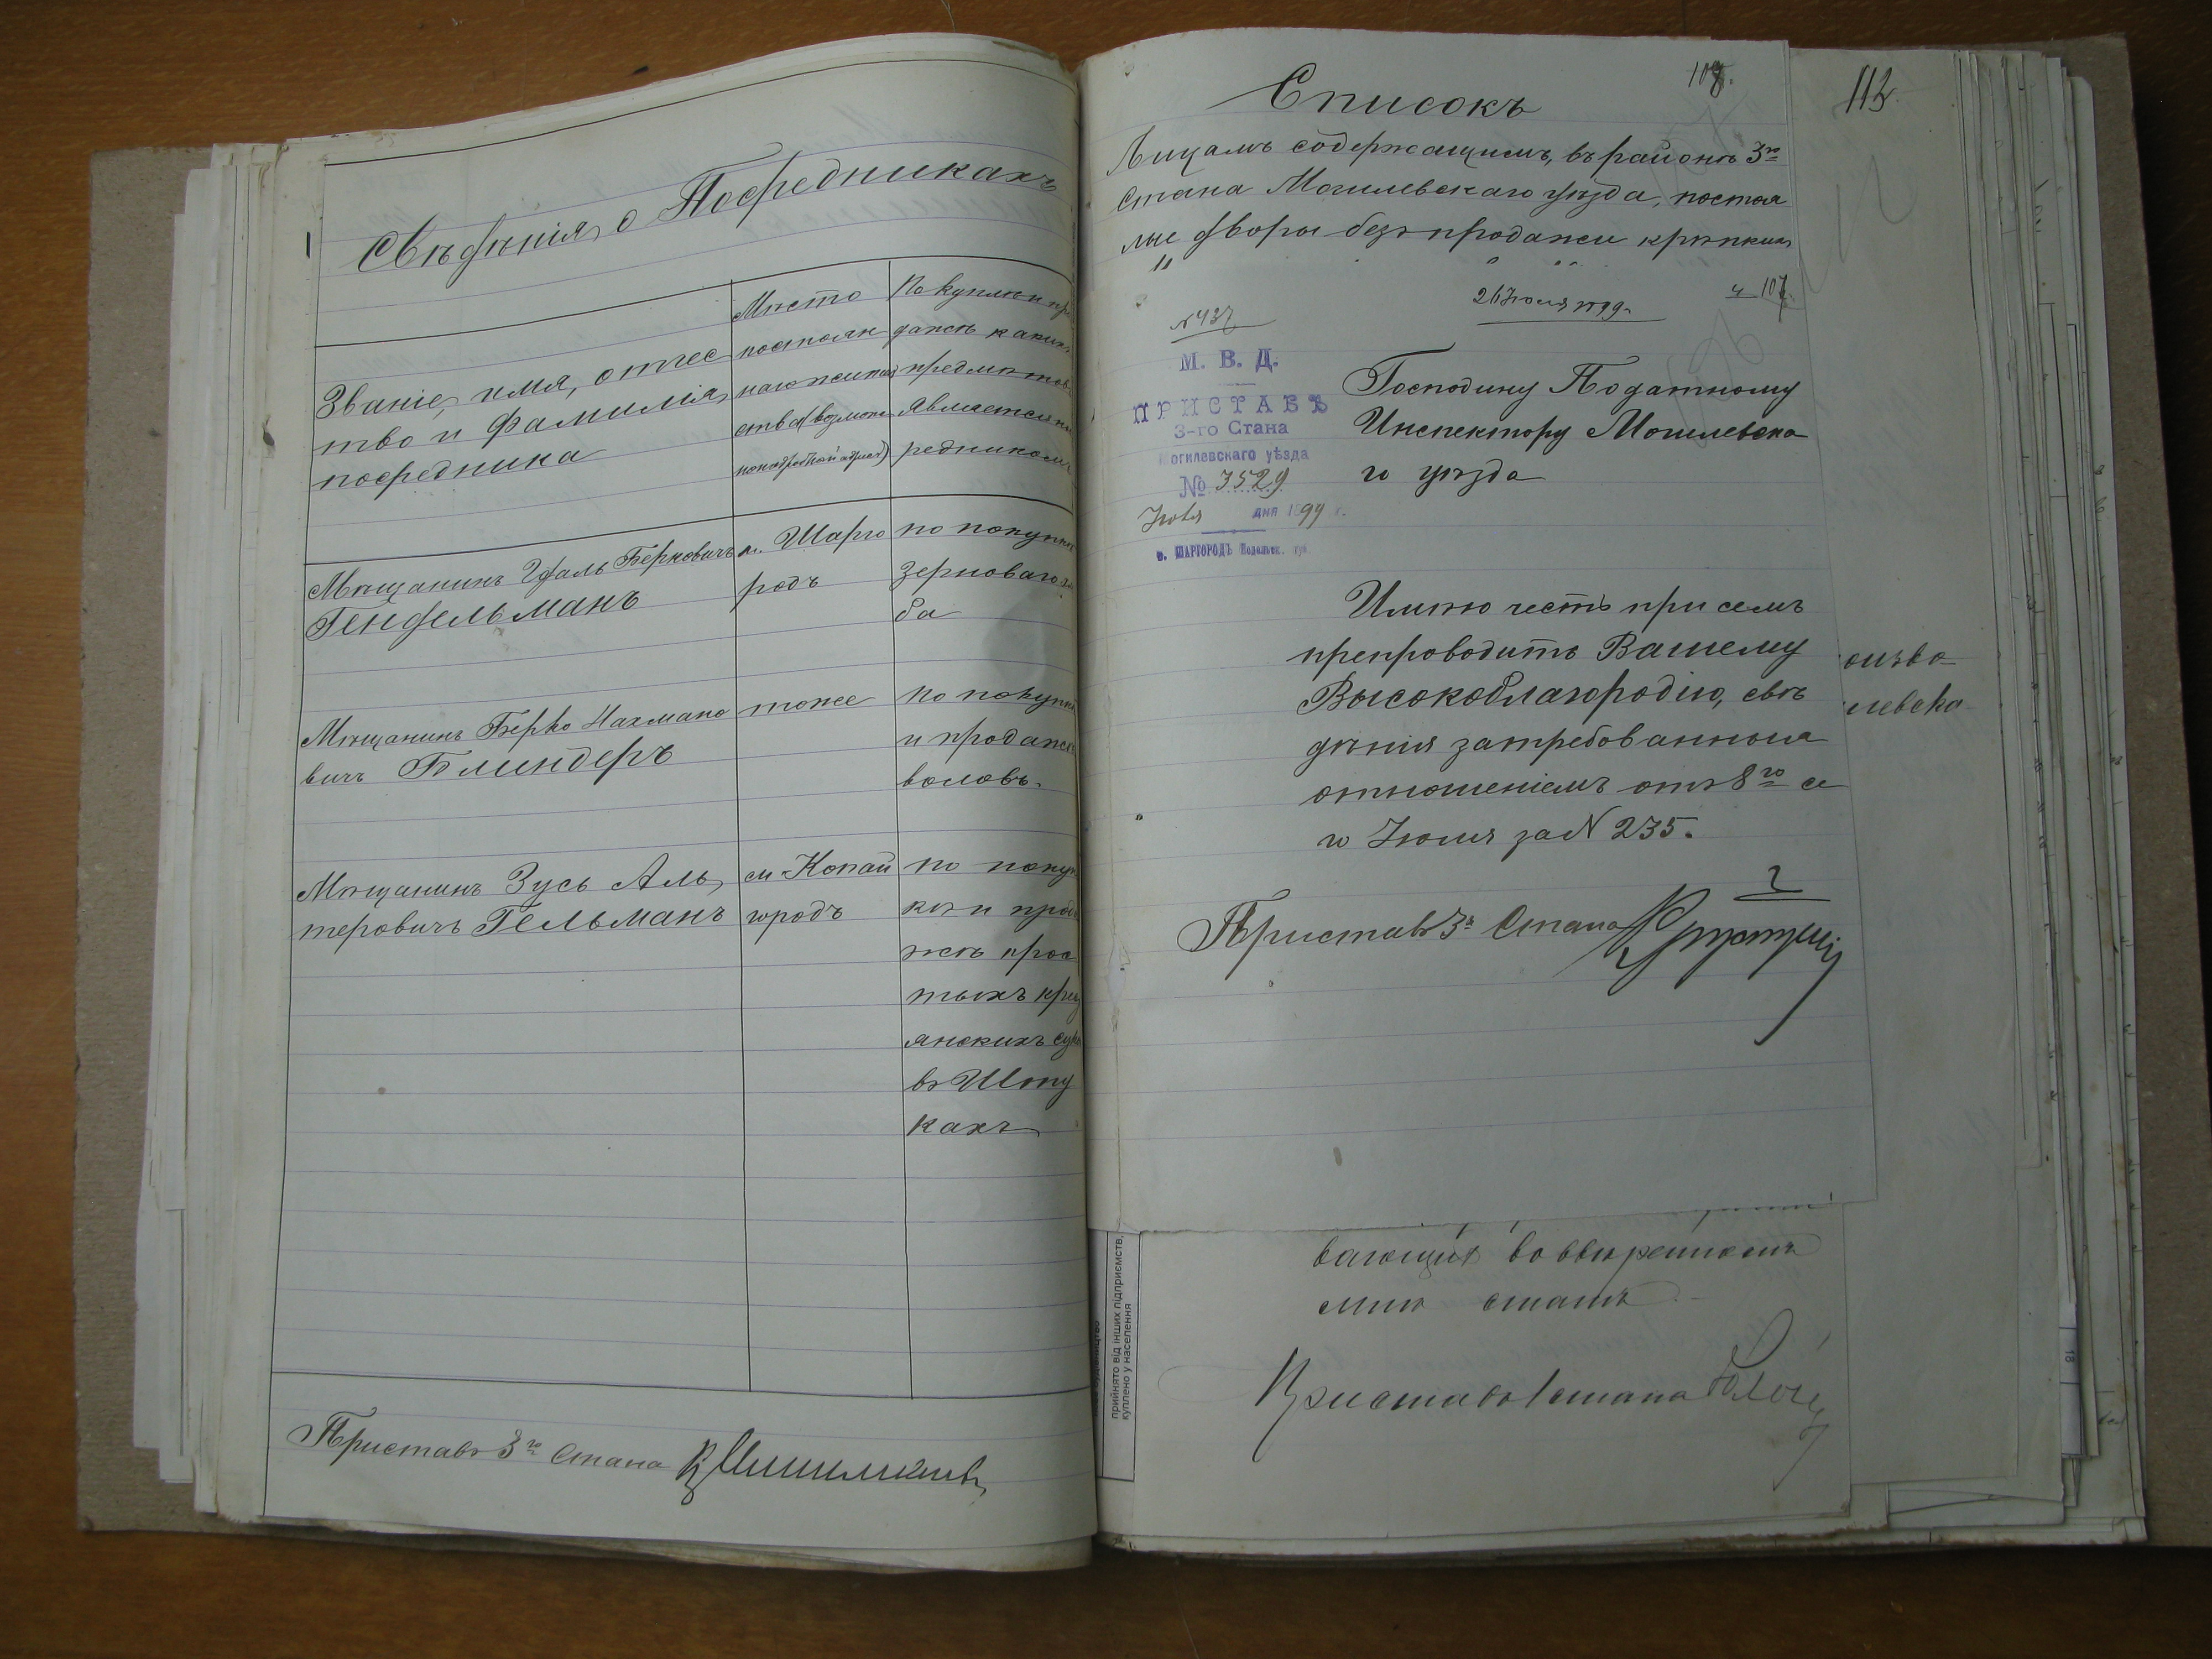 Свѣдѣнія о Посредникахъ
Званіе, имя, отчес
тво и фамилія
посредника
Мѣсто
постоян
наго житель
ства (возможно
подробный адресъ)
По куплѣ и про
дажѣ какихъ
предметовъ
является по
редникомъ
Мѣщанинъ Берковичъ
Гендельманъ
м. Шарго
родъ
по покупкѣ
зерноваго хлѣ
ба
Мѣщанинъ Берко Нахмано
вичъ Блиндеръ
тоже
по покупкѣ
и продажѣ
воловъ.
Мѣщанинъ Зусь Аль
теровичъ Гельманъ
м. Копай
городъ
по покуп
кѣ и прода
жѣ прос
тыхъ крес
янскихъ сук
въ Шту
кахъ
Приставъ 3го Стана
Списокъ
Лицамъ содержащимъ, въ районѣ 3го
Стана Могилевскаго уѣзда, постоя
лые дворы безъ продажи крѣпкихъ
26 Іюля 1899 г.
ч 107
№ 437
М. В. Д.
ПРИСТАВЪ
3-го Стана
Могилевскаго уѣзда
№ 3529
Іюля дня 1899 г.
м. ШАРГОРОДЪ Подольск. губ.
Господину Податному
Инспектору Могилевска
го уѣзда
Имѣю честь при семъ
препроводить Вашему
Высокоблагородію, свѣ
дѣнія затребованныя
отношеніемъ отъ 8го се
го Іюля за N 235.
Приставъ 3го Стана
112
оизво
левска
вающихъ во ввѣренномъ
мнѣ станѣ
Приставъ 1 стана
прийнято від інших підприємств,
куплено у населення
18